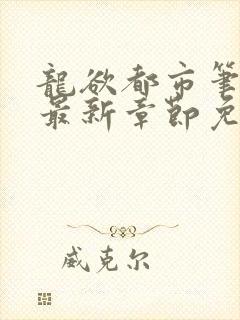 龍欲都市筆
最新章節免
威克尔